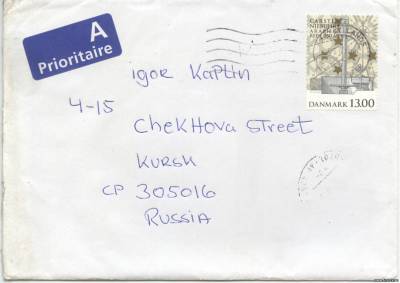 A
Prioritaire
CARSTEN
NIEBUHR
DANMARK 13.00
Igor Kaplin
4-15
Chekhova Street
KURSK
CP 305016
RUSSIA